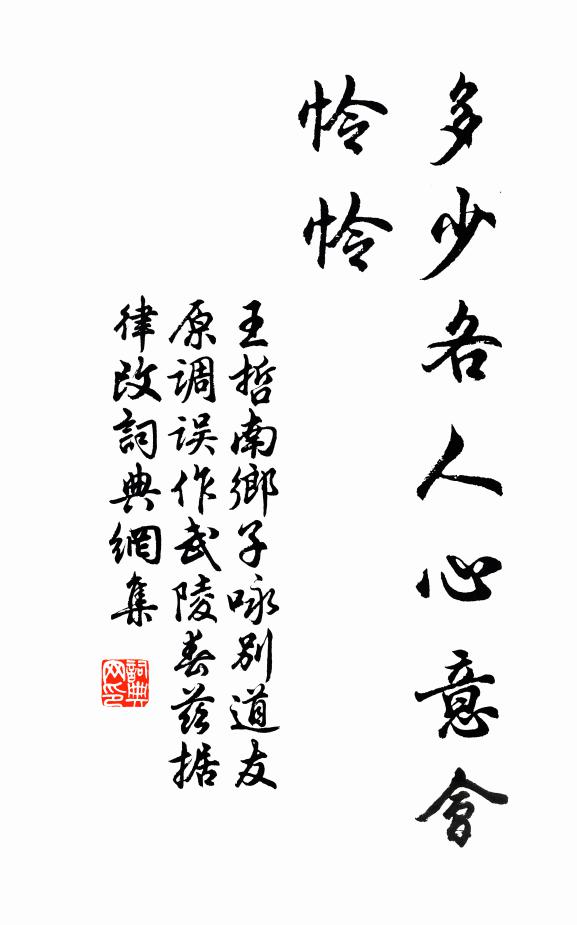 多少各人心意會
怜怜
王哲南鄉子咏别道友
原调误作武陵春兹据
律改詞典網集
詞典网印